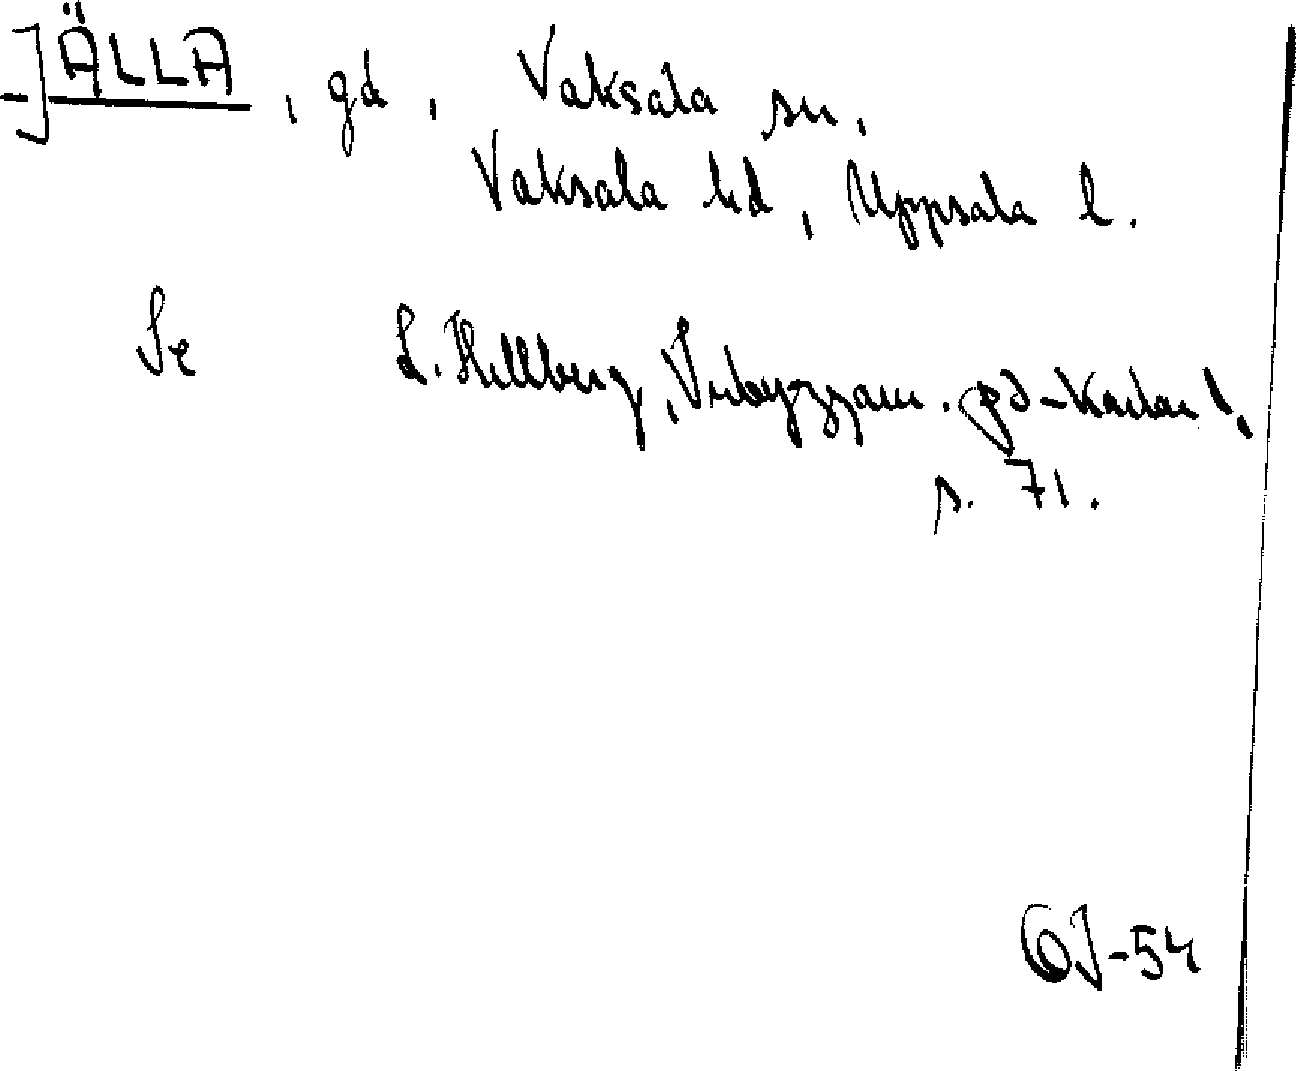 JÄLLA, gd, Vaksala sn,
Vaksala hd, Uppsala l.
Se L. Hellberg, Inbyggarn. på -karlar l,
s. 71.
OJ-54